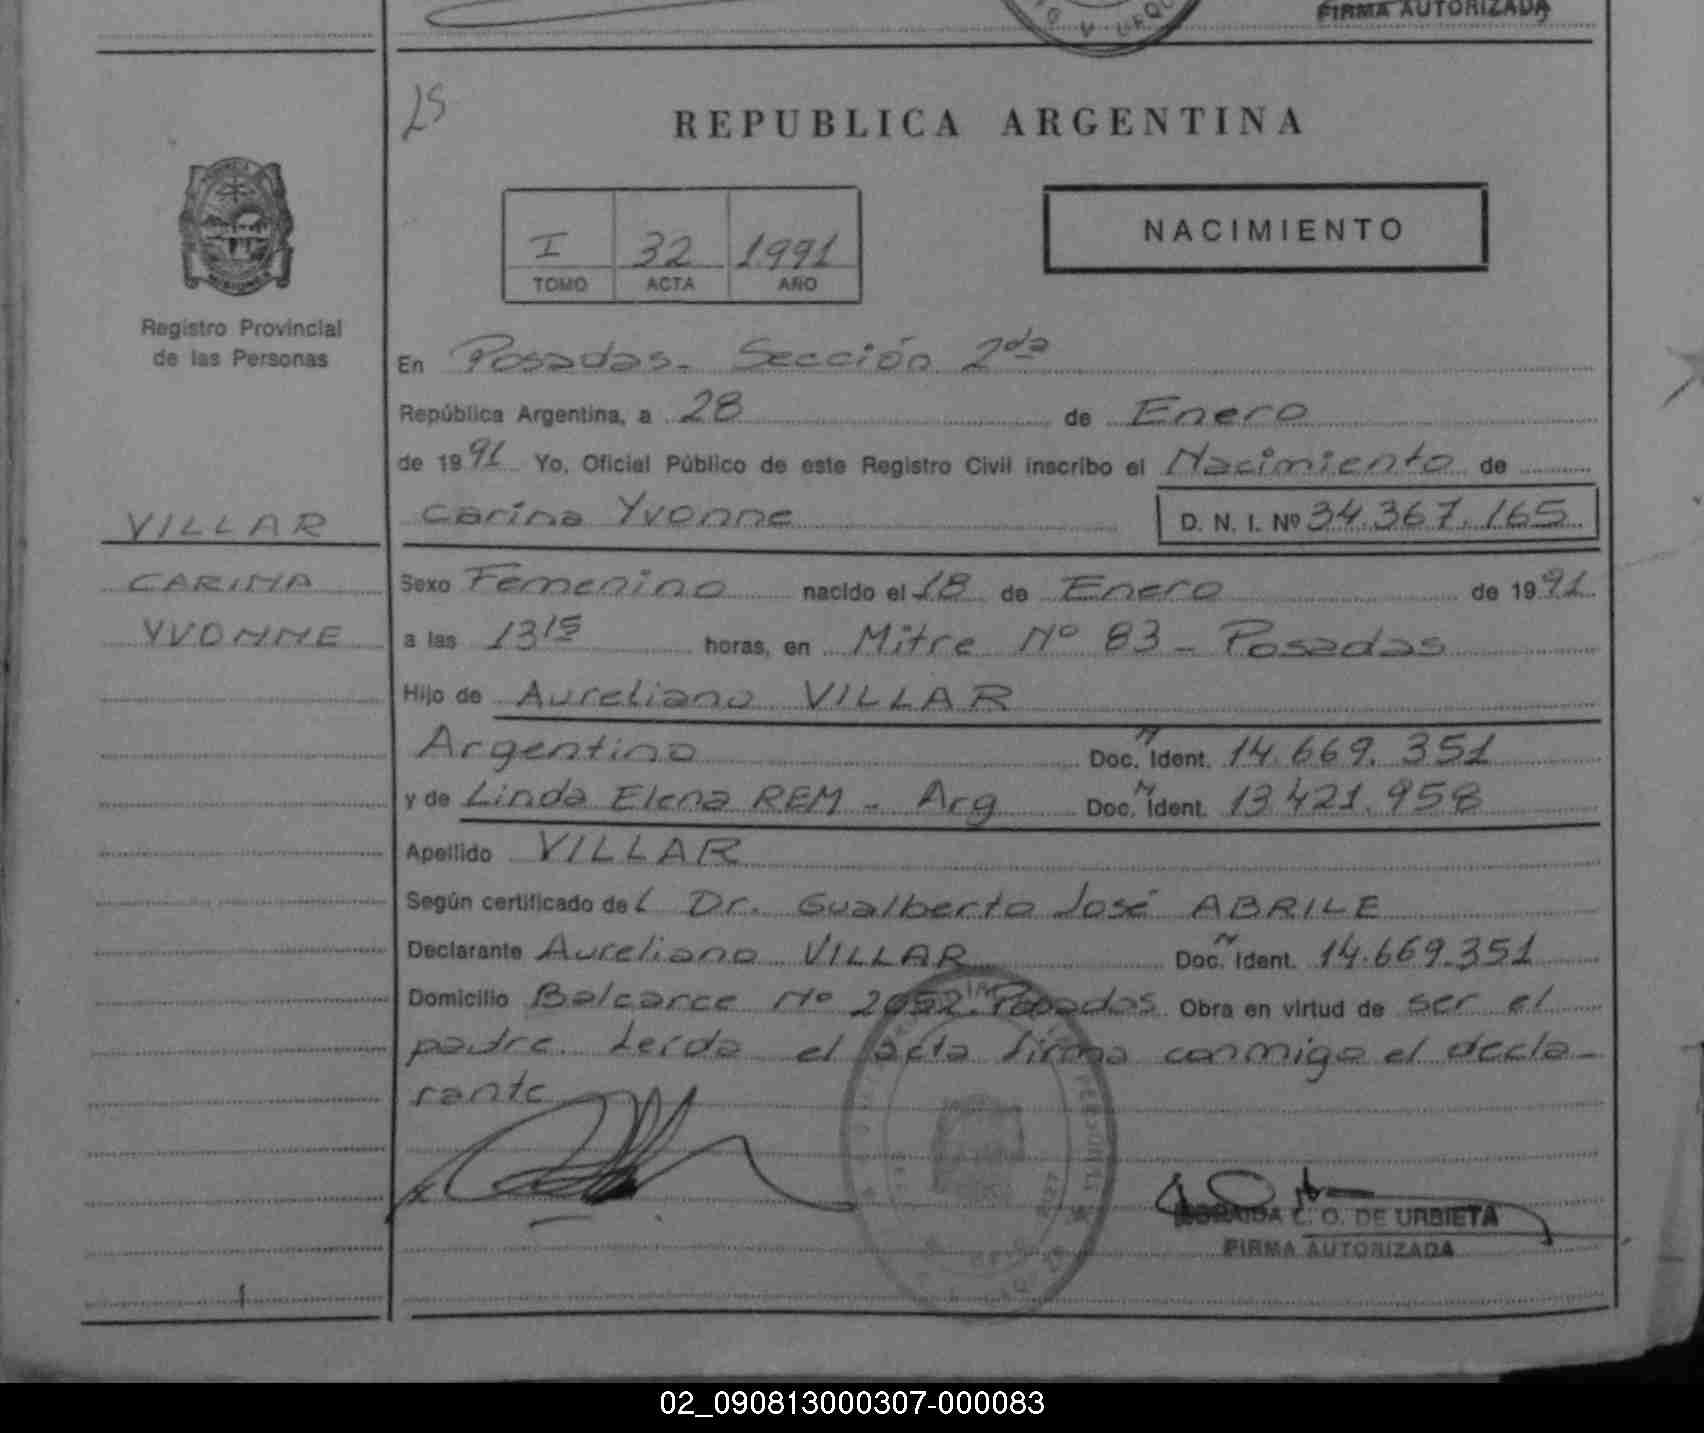 FIRMA AUTORIZADA
25
REPUBLICA ARGENTINA
I 32 1991
TOMO ACTA AÑO
NACIMIENTO
Registro Provincial
de las Personas
En Posadas - Sección 2da
República Argentina, a 28 de Enero
de 1991 Yo, Oficial Público de este Registro Civil inscribo el Nacimiento de
VILLAR
Carina Yvonne D. N. I. Nº 34.367.165
CARINA
Sexo Femenino nacido el 18 de Enero de 1991
YVONNE
a las 13 15 horas, en Mitre Nº 83 - Posadas
Hijo de Aureliano VILLAR
Argentino Doc. N Ident. 14.669.351
y de Linda Elena REM - Arg Doc. N Ident. 13.421.958
Apellido VILLAR
Según certificado del Dr. Gualberto José ABRILE
Declarante Aureliano VILLAR Doc. N Ident. 14.669.351
Domicilio Balcarce Nº 2052. Posadas Obra en virtud de ser el
padre. Leida el acta firma conmigo el decla-
rante
C. O. DE URBIETA
FIRMA AUTORIZADA
02_090813000307-000083